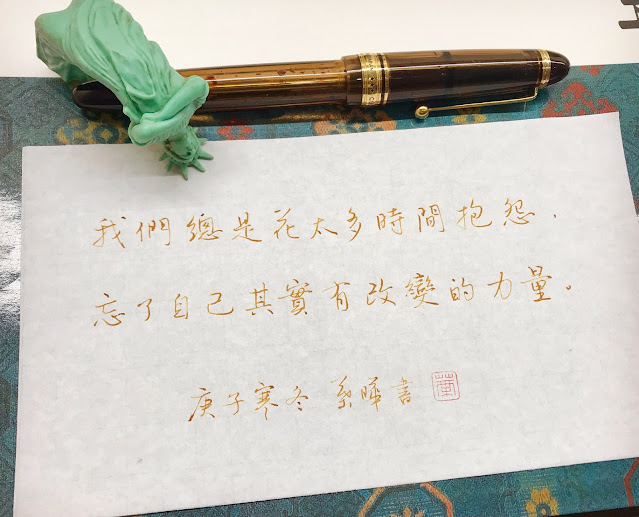 我們總是花太多時間抱怨，
忘了自己其實有改變的力量。
庚子寒冬 葉曄書
葉